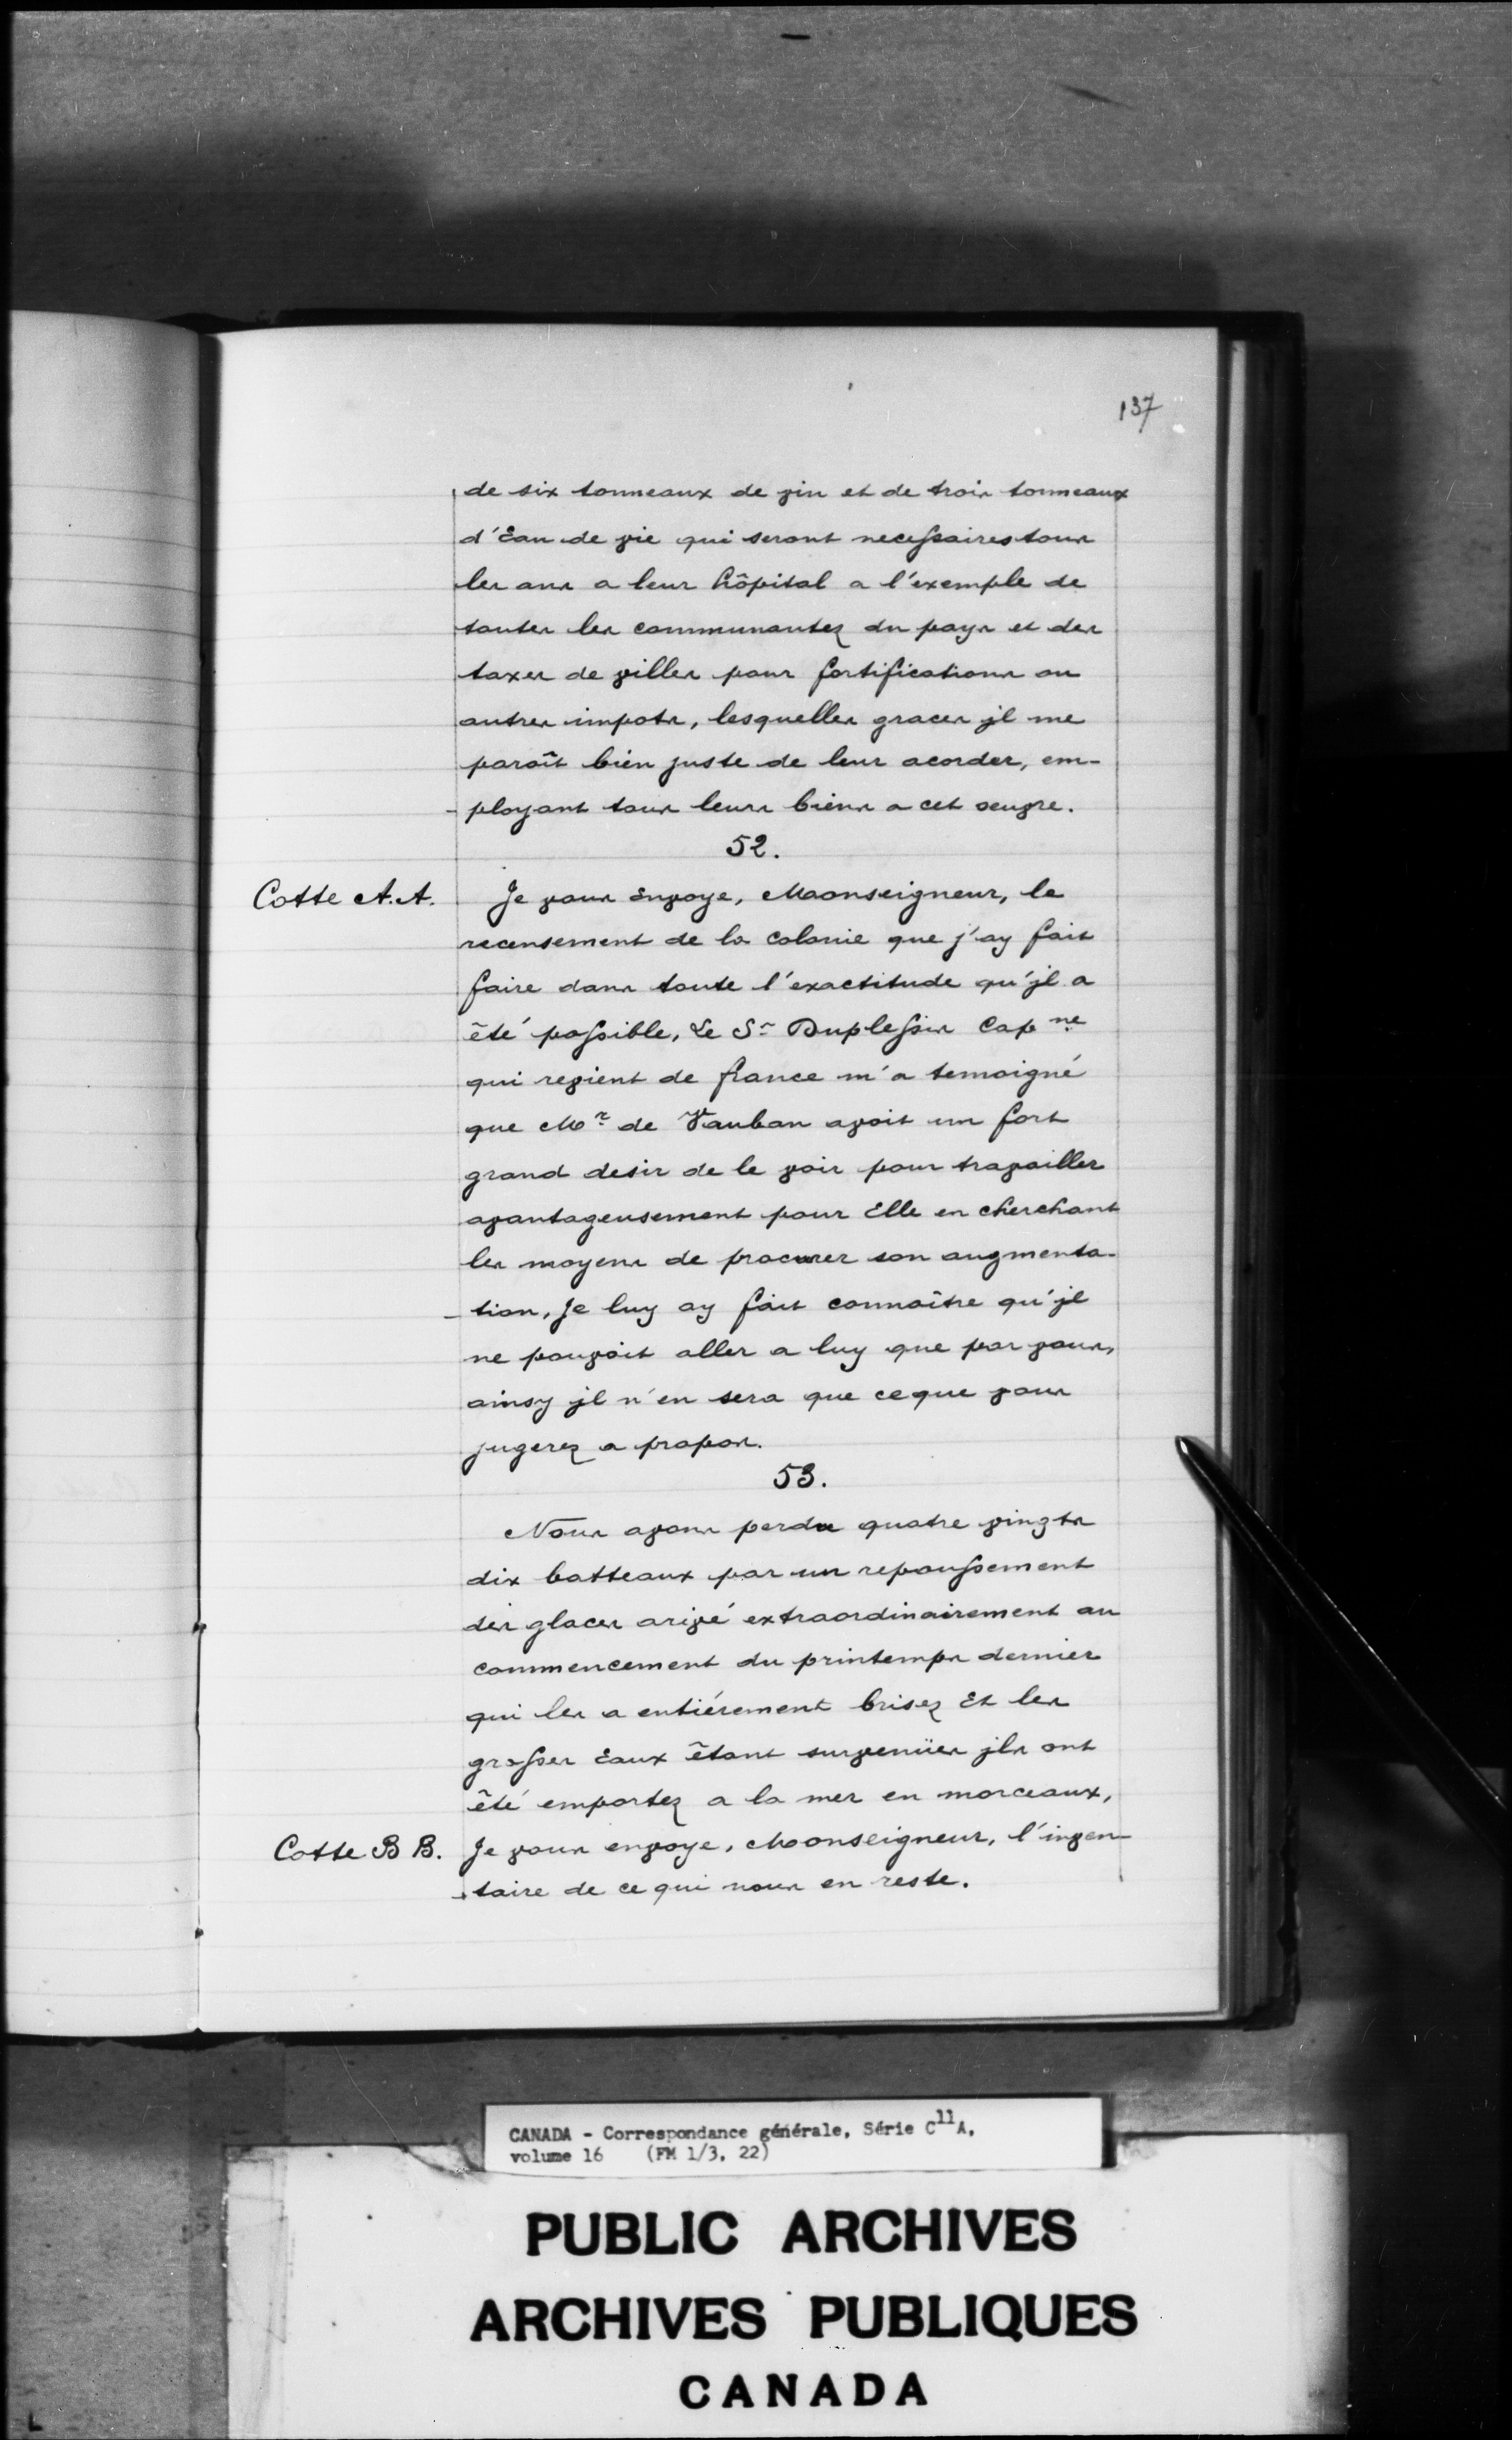 137
de six tonneaux de vin et de trois tonneaux
d'Eau de vie qui seront necessaires tous
les ans a leur hôpital a l'exemple de
toutes les communautez du pays et des
taxes de villes pour fortifications ou
autres impots, lesquelles graces jl me
paroît bien juste de leur acorder, em-
-ployant tous leurs biens a cet oeuvre.
52.
Cotte A.A.
Je vous Envoye, Monseigneur, le
recensement de la Colonie que j'ay fait
faire dans toute l'exactitude qu'jl a
êté possible, Le Sr Duplessis Capne
qui revient de france m'a temoigné
que Mr de Vauban avoit un fort
grand desir de le voir pour travailler
avantageusement pour Elle en cherchant
les moyens de procurer son augmenta-
-tion, Je luy ay fait connaître qu'jl
ne pouvoit aller a luy que par vous,
ainsy jl n'en sera que ce que vous
jugerez a propos.
53.
Nous avons perdu quatre vingts
dix batteaux par un repoussement
des glaces arivé extraordinairement au
commencement du printemps dernier
qui les a entiérement brisez Et les
grosses Eaux êtant survenües jls ont
êté emportez a la mer en morceaux,
Cotte B B.
Je vous envoye, Monseigneur, l'inven-
-taire de ce qui nous en reste.
CANADA - Correspondance générale, Série C11A,
volume 16 (FM 1/3, 22)
PUBLIC ARCHIVES
ARCHIVES PUBLIQUES
CANADA